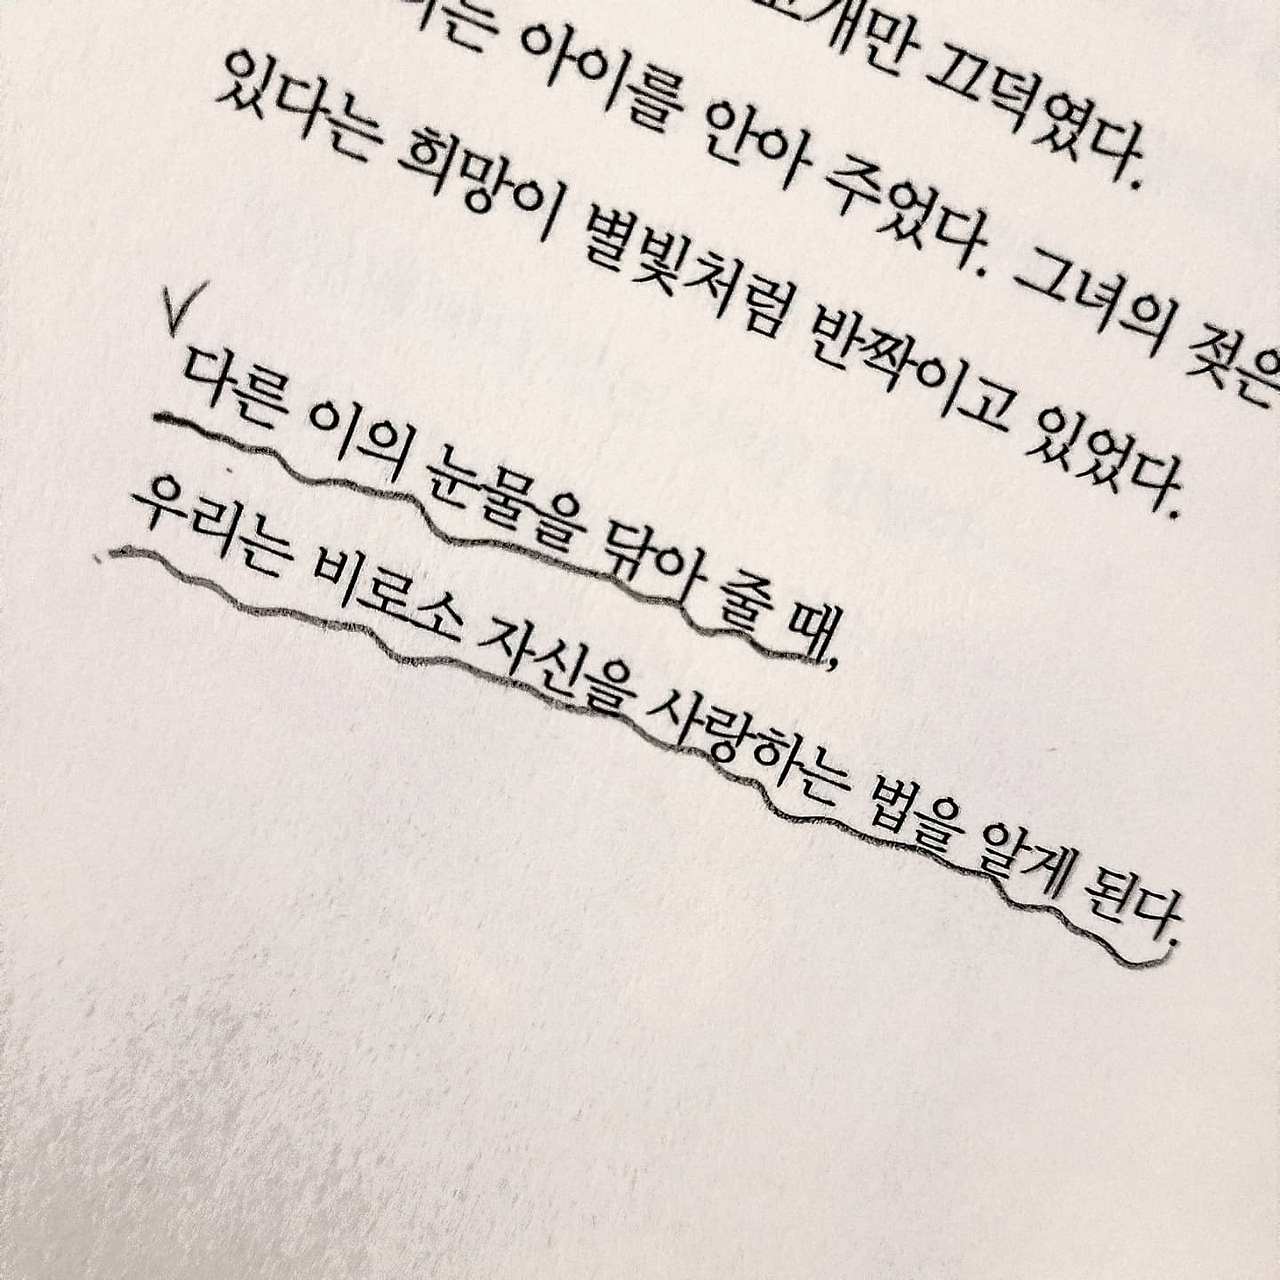 고개만 끄덕였다.
는 아이를 안아 주었다. 그녀의 젖은
있다는 희망이 별빛처럼 반짝이고 있었다.
다른 이의 눈물을 닦아 줄 때,
우리는 비로소 자신을 사랑하는 법을 알게 된다.